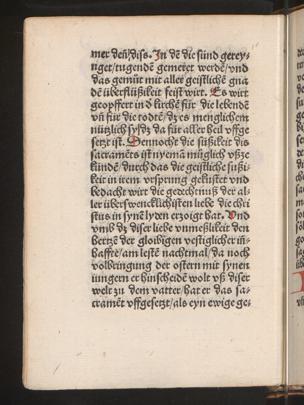 mer deñ/diss. In dē die sünd gerey-
niget/tugendē gemeret werdē/vnd
das gemüt mit aller geistlichē gna
dē überflüssikeit feist wirt. Es wirt
geopffert in d kirchē für die lebendē
vñ für die todtē/dz es menglichem
nützlich sy/dz da für aller heil vffge
setzt ist. Dennocht die süssikeit dis
sacramēts ist nyemā müglich vßze
kündē/durch das die geistliche süssi-
keit in irem vrsprung gekustet vnd
bedacht wirt die gedechtnuß der al-
ler überswencklichisten liebe die chri
stus in synē lyden erzoigt hat. Vnd
vmb dz diser liebe vnmeßlikeit den
hertzē der gloibigen vestiglicher in-
haffte/am lestē nachtmal/da noch
volbringung der ostern mit synen
iungern er hinscheidē wolt vß diser
welt zu dem vatter/hat er das sa-
cramēt vffgesetzt/als eyn ewige ge-